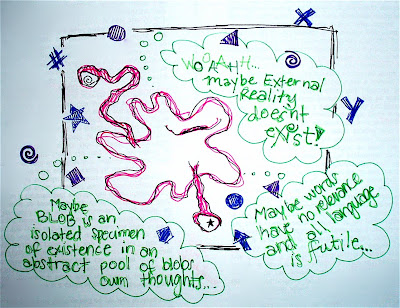 WOAAHH...
maybe External
Reality
doesnt
exist!
Maybe
BLOB is an
isolated specimen
of existence in an
abstract pool of blobs
own thoughts...
Maybe words
have no relevance
and all language
is futile...